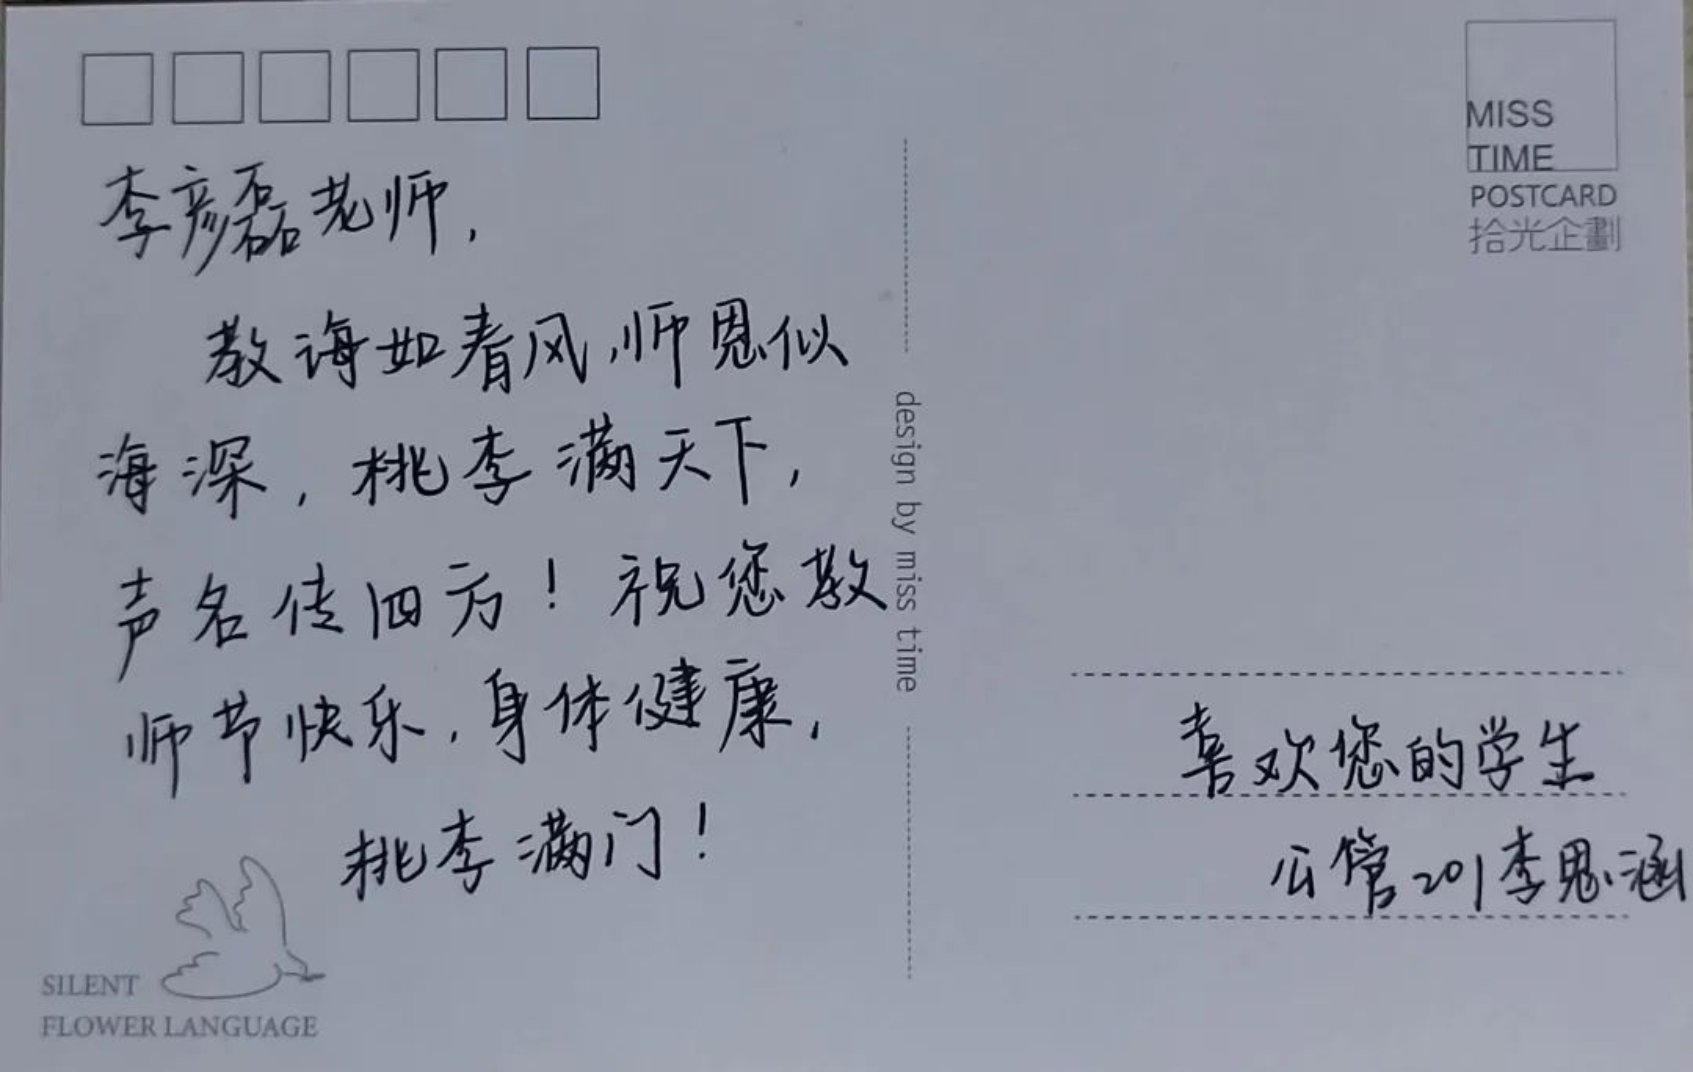 李彦磊老师，
教诲如春风，师恩似
海深，桃李满天下，
声名传四方！祝您教
师节快乐，身体健康，
桃李满门！
SILENT
FLOWER LANGUAGE
design by miss time
MISS
TIME
POSTCARD
拾光企劃
喜欢您的学生
公管201李思涵